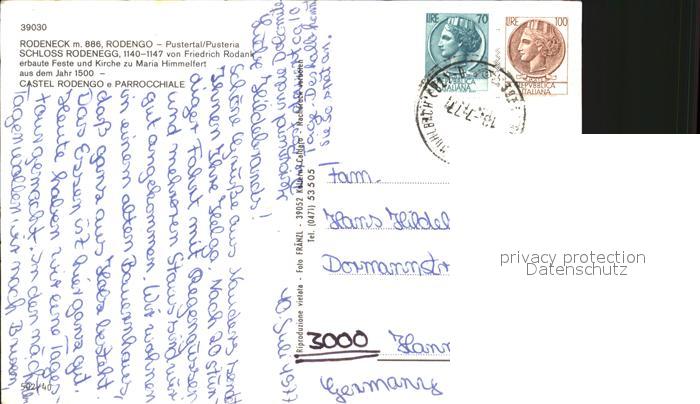 39030
RODENECK m. 886, RODENGO – Pustertal/Pusteria
SCHLOSS RODENEGG, 1140–1147 von Friedrich Rodank
erbaute Feste und Kirche zu Maria Himmelfert
aus dem Jahr 1500 –
CASTEL RODENGO e PARROCCHIALE
LIRE 70
ITALIANA
LIRE 100
REPVBBLICA
ITALIANA
Schöne Grüße aus
Ihnen Ihre Helga. Nach 20 stün-
diger Fahrt mit Regengüssen
und mehreren Staus sind wir
gut angekommen. Wir wohnen
in einem alten Bauernhaus,
daß ganz aus Holz besteht.
Das Essen ist hier ganz gut.
Heute haben wir eine Tages-
tour gemacht. In den nächsten
Tagen wollen wir nach Brixen,
Meran und in die Dolomiten
Riproduzione vietata - Foto FRÄNZL - 39052 Kaltern/Caldaro - Nachdruck verboten
Tel. (0471) 53505
Fam.
Hans Hildel
Dormannstr
3000 Hann
Germany
502/40
privacy protection
Datenschutz